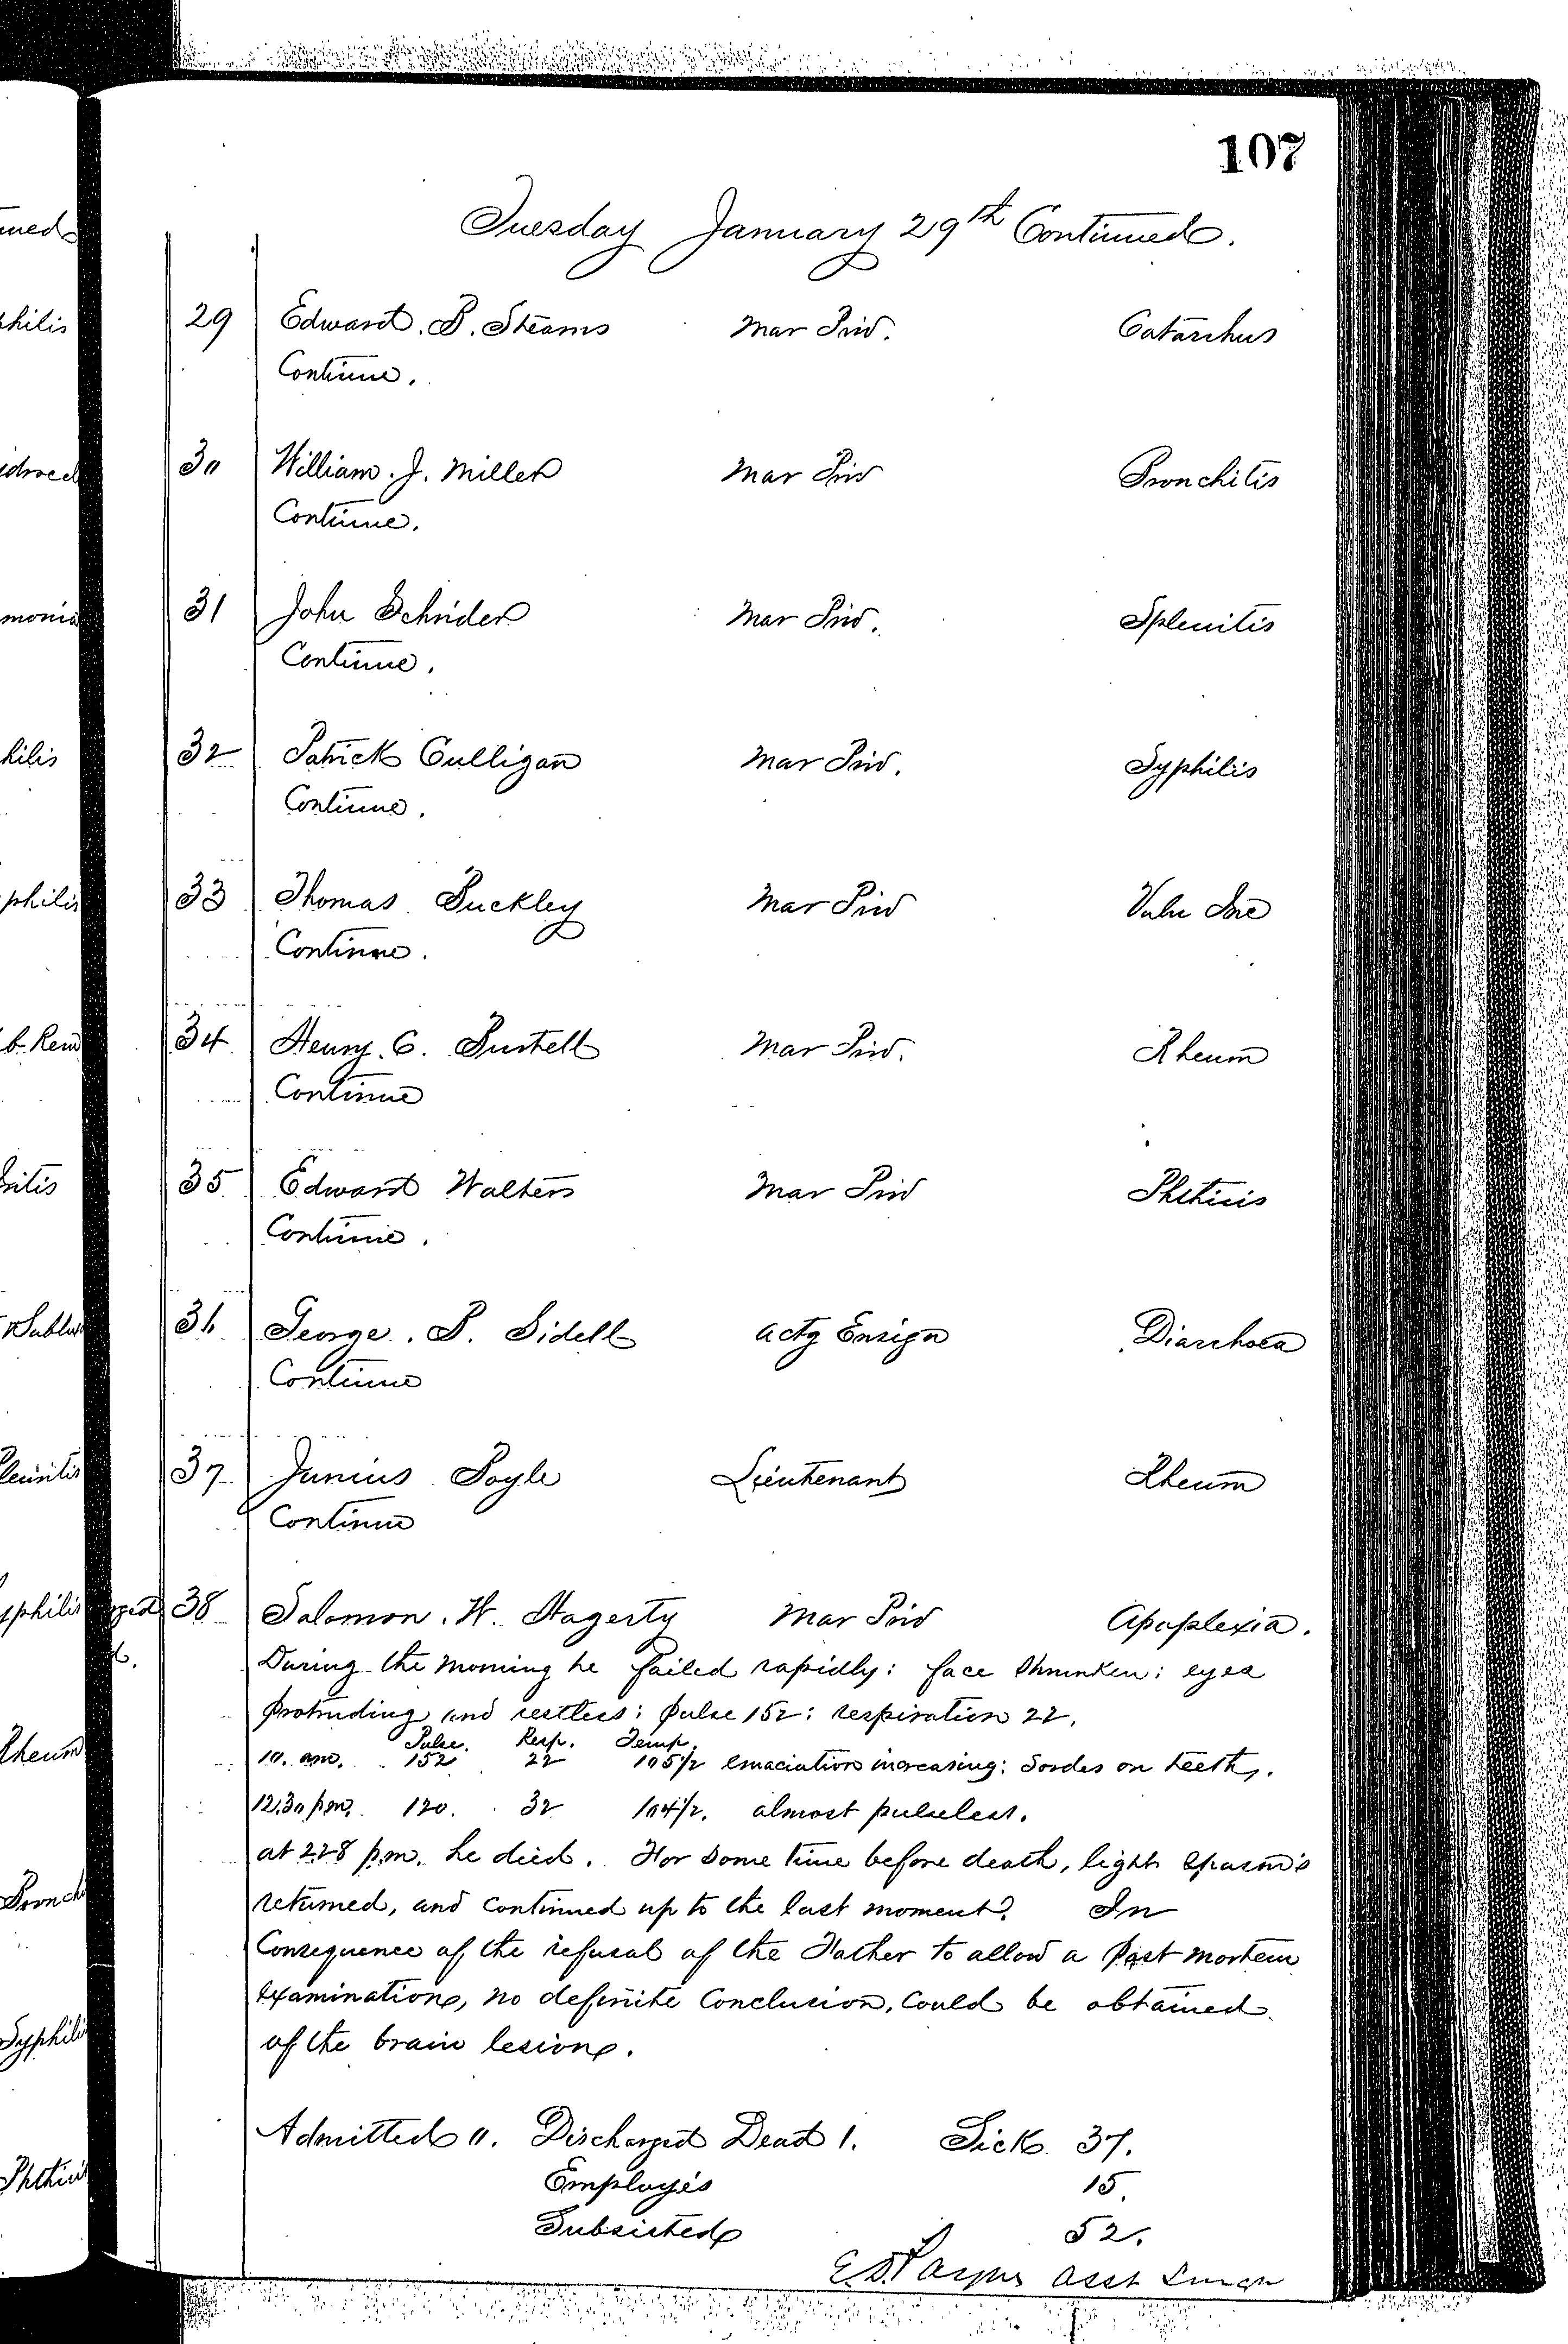 107
Tuesday January 29th Continued.
29 Edward. B. Stearns Mar Priv. Catarrhus
Continue.
30 William. J. Miller Mar Priv Bronchitis
Continue.
31 John Schrider Mar Priv. Splenitis
Continue.
32 Patrick Culligan Mar Priv. Syphilis
Continue.
33 Thomas Buckley Mar Priv Vuln Inc
Continue.
34 Henry. C. Mar Priv. Rheum
Continue
35 Edward Walters Mar Priv Phthisis
Continue.
36 George. P. Sidell Actg Ensign Diarrhoea
Continue
37 Junius Boyle Lieutenant Rheum
Continue
38 Solomon. H. Hagerty Mar Priv Apoplexia.
During the morning he failed rapidly: face shrunken: eyes
protruding and restless: pulse 152: respiration 22.
Pulse. Resp. Temp.
10. am. 152 22 105½ emaciation increasing: Sordes on teeth.
12.30 pm. 120. 32 104½. almost pulseless.
at 2.28 p.m. he died. For some time before death, light spasms
returned, and continued up to the last moment. In
Consequence of the refusal of the Father to allow a Post mortem
examination, no definite Conclusion, Could be obtained
of the brain lesion.
Admitted 0. Discharged Dead 1. Sick 37.
Employés 15.
Subsisted 52.
Asst Surgn